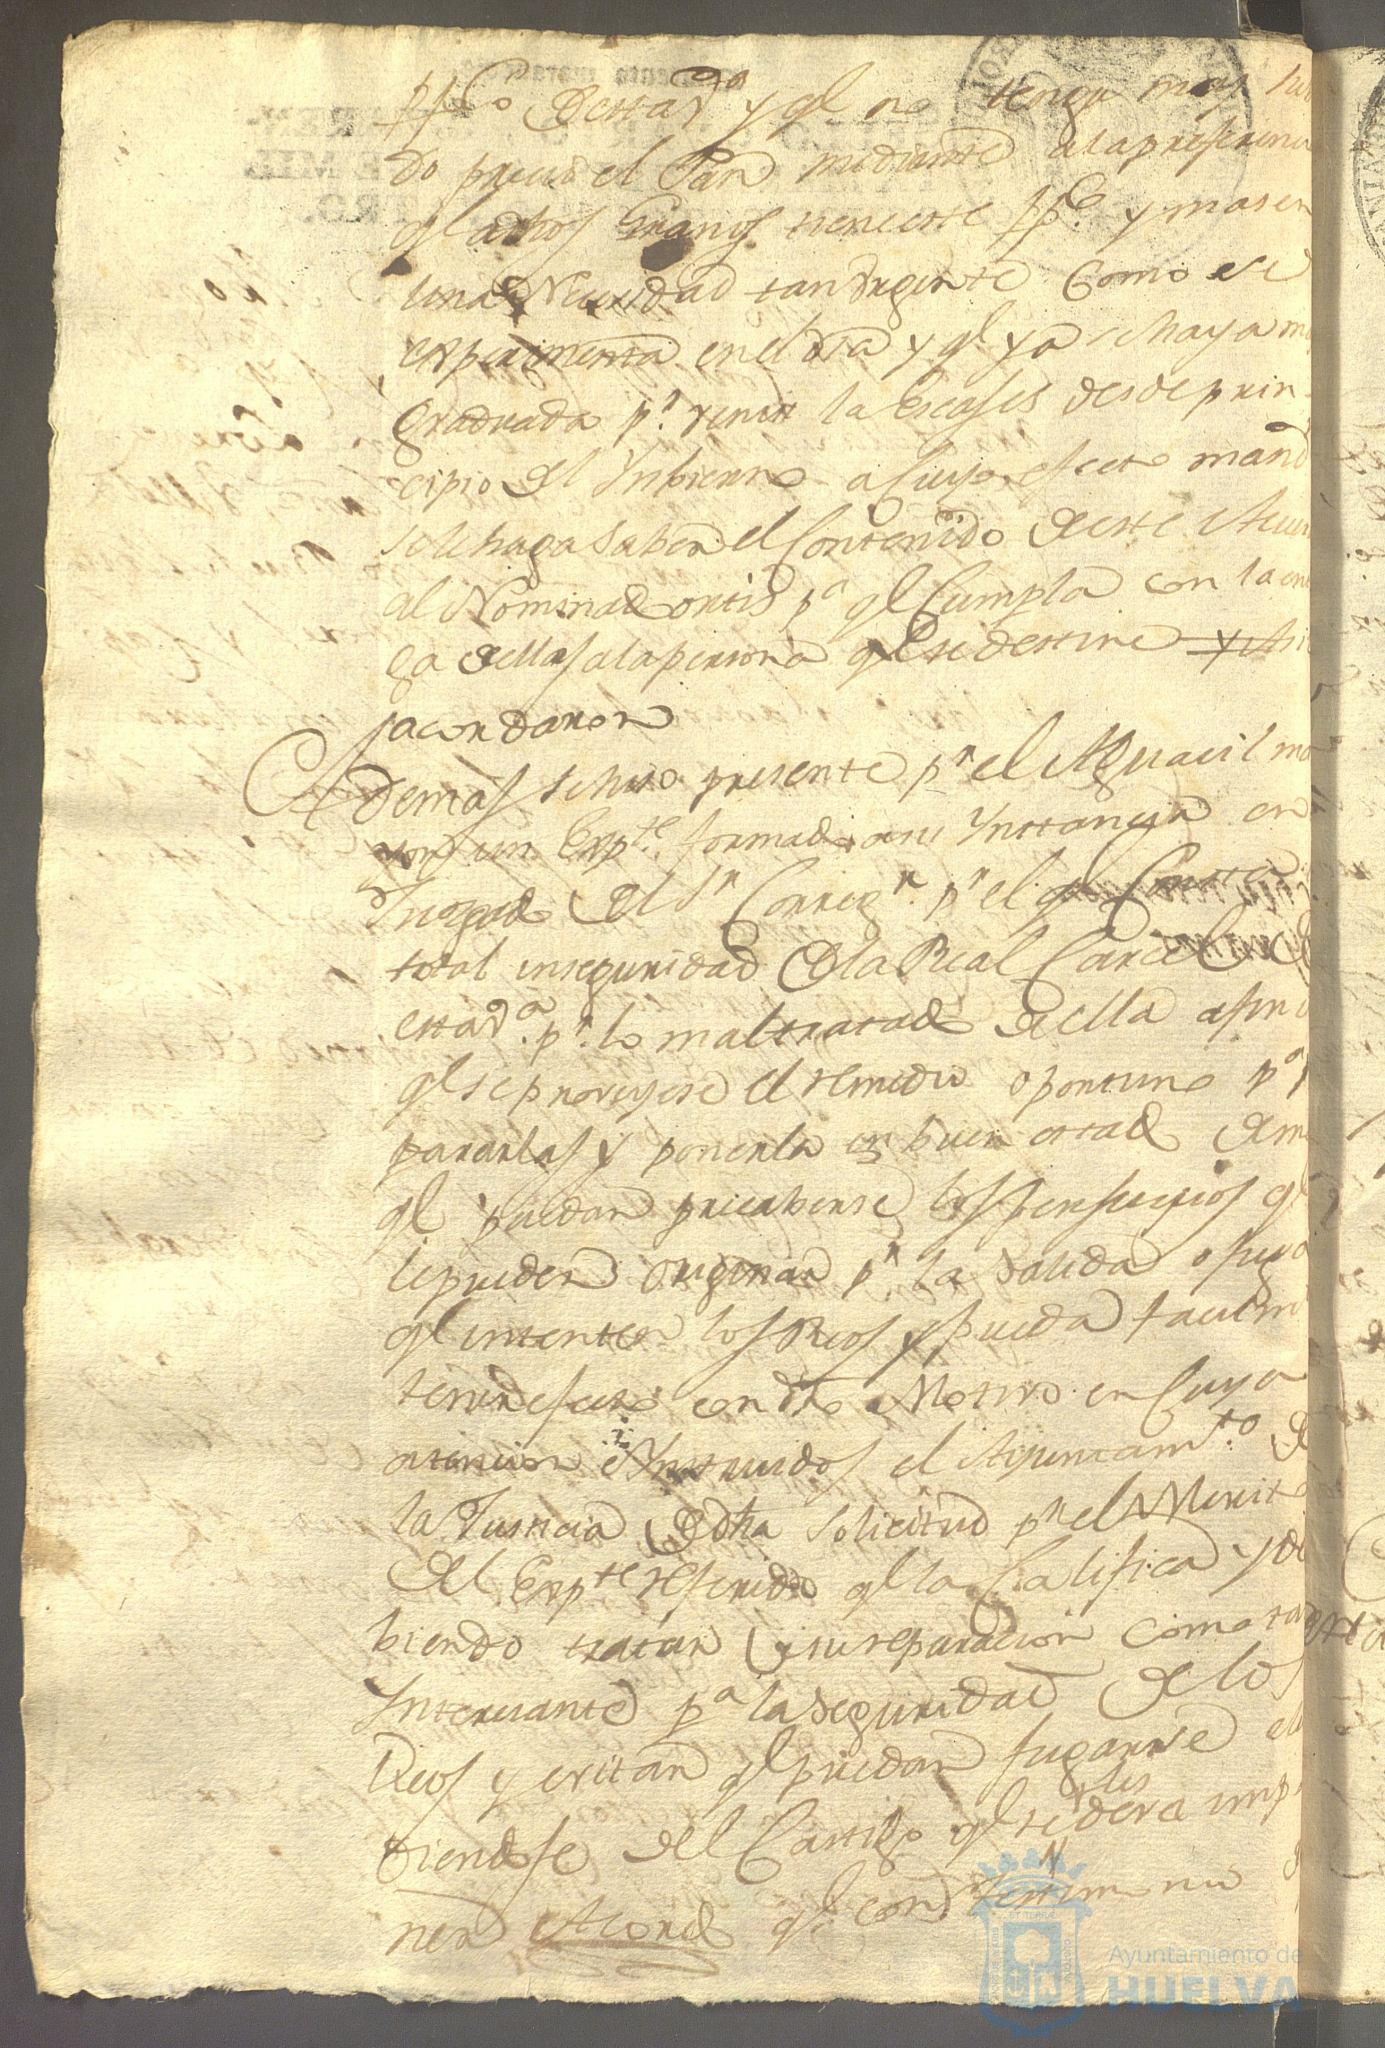 ppco. de esta va. y ql no tenga mas su
do precio el Pan mediante a la preferencia
ql a dhos Granos tiene este ppco. y mas en
una Necesidad tan Urgente como se
experimenta en el dia y ql ya se haya
graduada pr. venir la Escases desde prin
cipio del Ynbierno a cuyo efecto mando
se le haga saber el Contenido de este Acuer
al Nominado pa ql Cumpla con la en
ga de ellas a la persona ql se destine y Asi
lo acordaron
Ademas se hiso presente pr el Alguacil ma
yor un Expte. formado a su Ynstancia en
Jusgado del Sr Corregr. pr el ql Consta
total inseguridad de la Real Carcel de
esta va. pr. lo maltratado de ella a fin
ql se proveyese el remedio oportuno pa
pararlas y ponerla en buen estado de mo
ql puedan precaberse los perjuicios ql
le pueden Originar pr la Salida o fuga
ql intenten los Reos y pueda
tener efecto con dho Motivo en Cuya
atencion e Ynstruidos el Ayuntamto. de
la Justicia de dha solicitud pr el Merito
del Expte referido ql la Califica y de
biendo tratar de su reparacion como tan
Ynteresante pa la Seguridad de los
Reos y evitar ql puedan fugarse
diendose del Castigo ql se les deva impo
ner Acordo ql con Testimonio
Ayuntamiento de
HUELVA